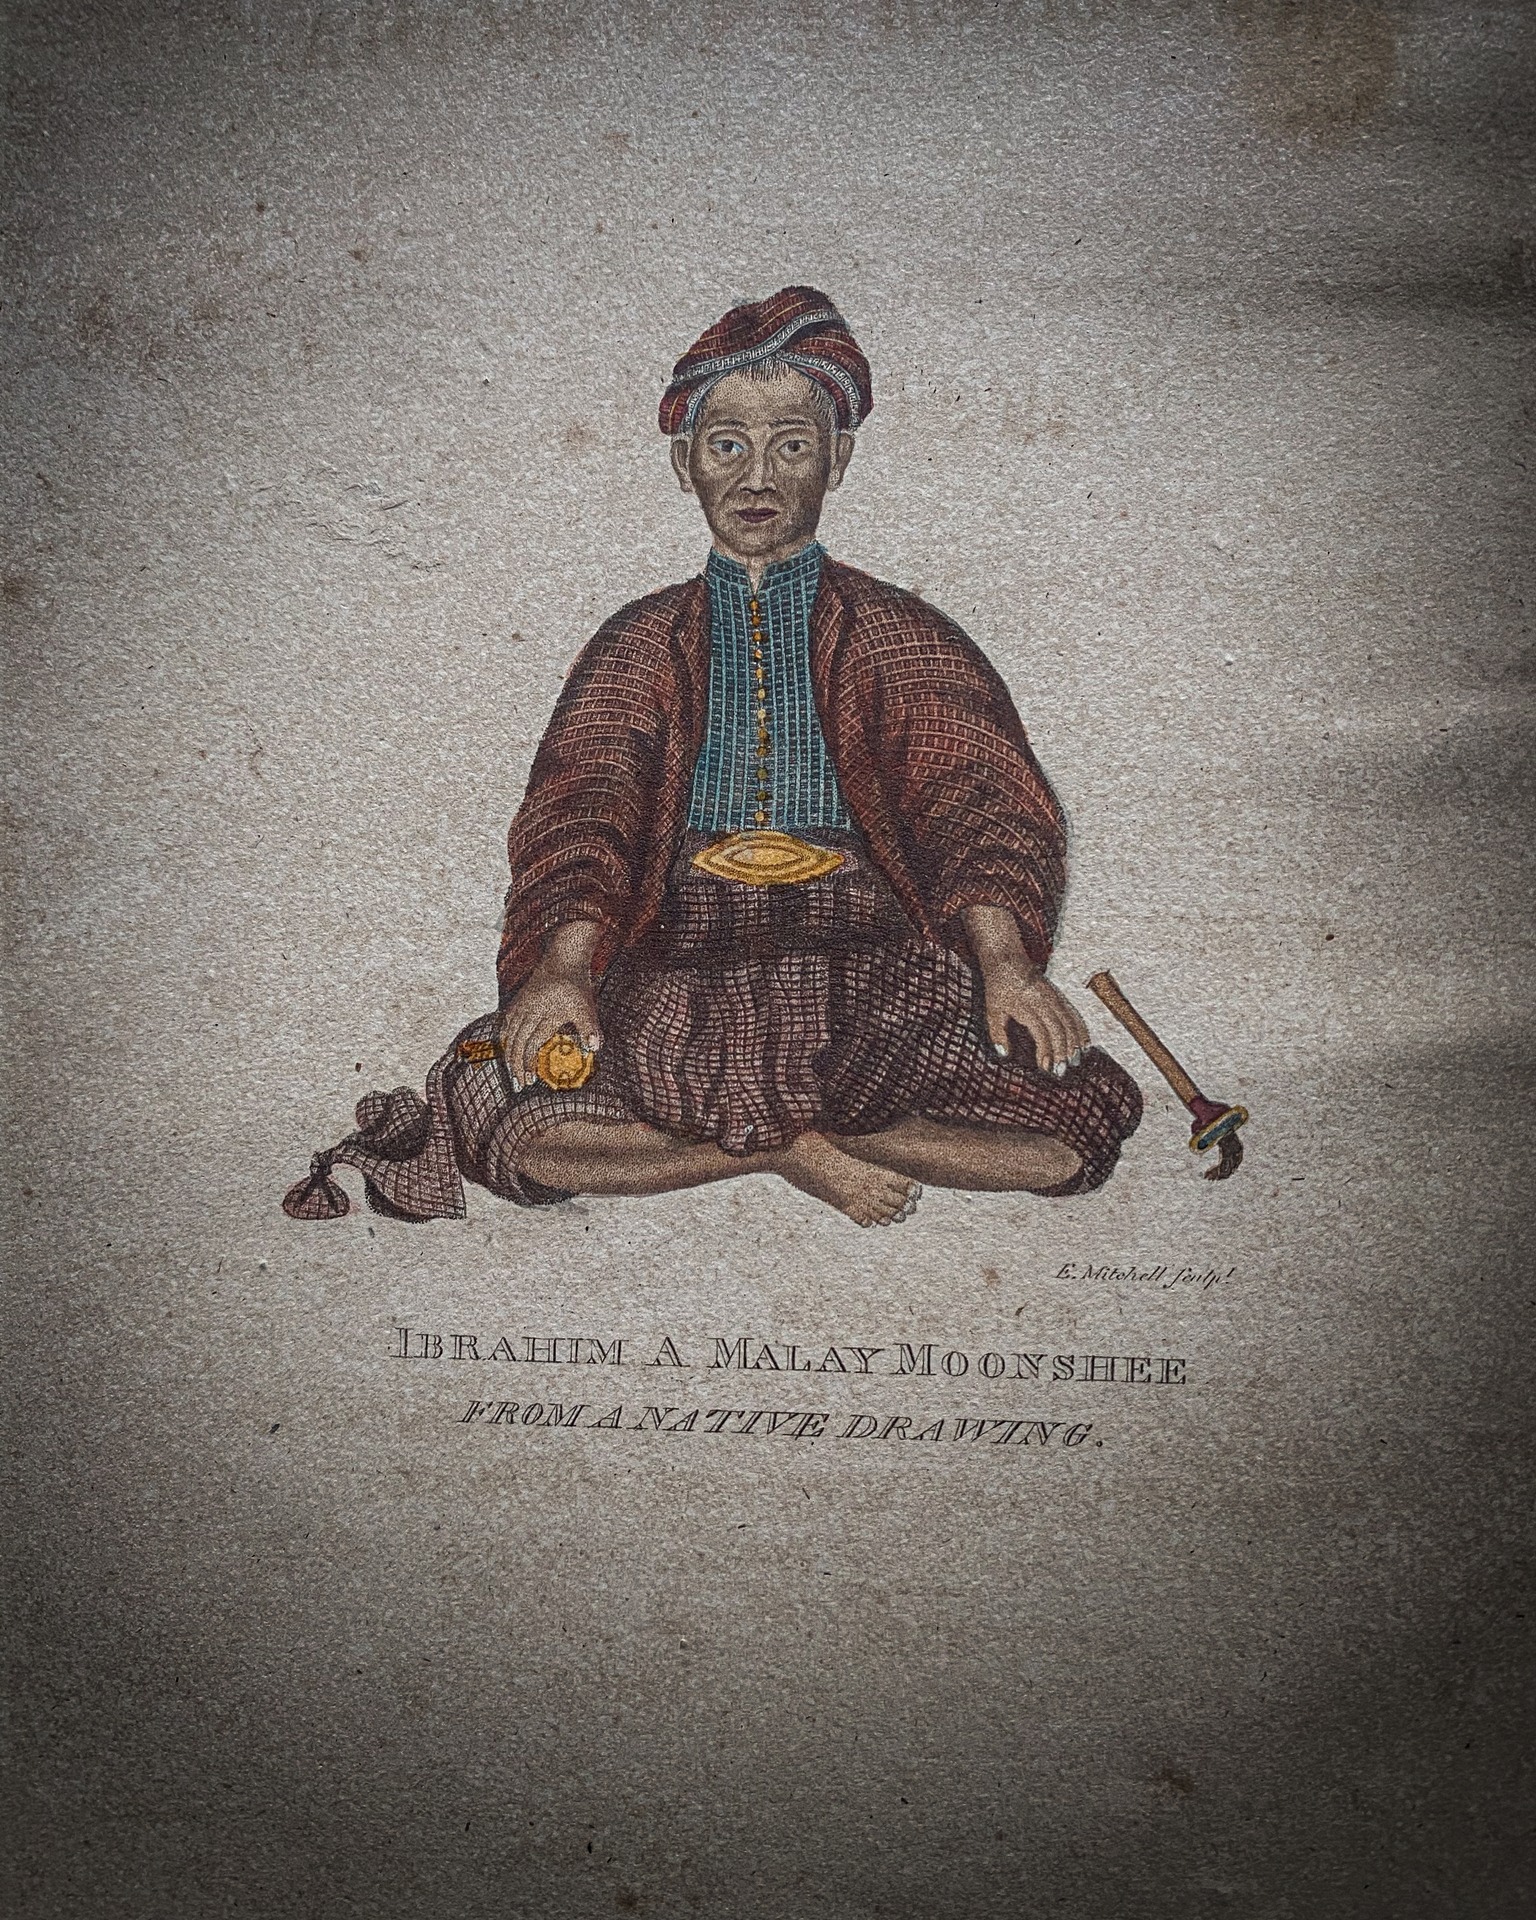 E. Mitchell sculpt
IBRAHIM A MALAY MOONSHEE
FROM A NATIVE DRAWING.